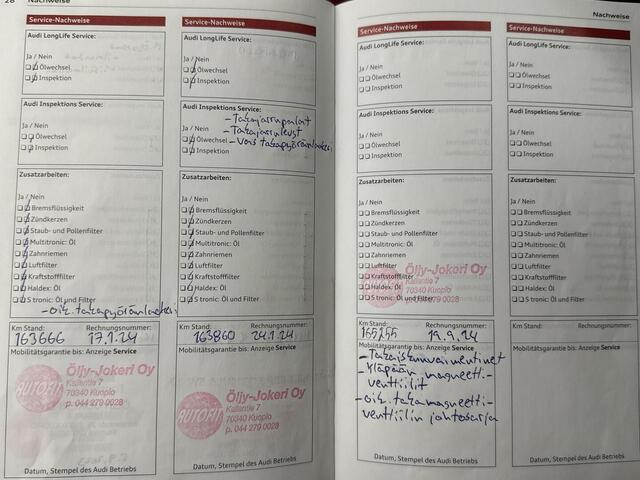 28
Nachweise
Service-Nachweise
Audi LongLife Service:
Ja / Nein
Ölwechsel
Inspektion
Audi Inspektions Service:
Ja / Nein
Ölwechsel
Inspektion
Zusatzarbeiten:
Ja / Nein
Bremsflüssigkeit
Zündkerzen
Staub- und Pollenfilter
Multitronic: Öl
Zahnriemen
Luftfilter
Kraftstofffilter
Haldex: Öl
S tronic: Öl und Filter
- oik. takapyöränlaakeri
Km Stand: Rechnungsnummer:
163666 17.1.24
Mobilitätsgarantie bis: Anzeige Service
AUTOFIT
Öljy-Jokeri Oy
Kallantie 7
70340 Kuopio
p. 044 279 0028
Datum, Stempel des Audi Betriebs
Service-Nachweise
Audi LongLife Service:
Ja / Nein
Ölwechsel
Inspektion
Audi Inspektions Service:
- Takajarrupalat
Ja / Nein
- Takajarrulevyt
Ölwechsel
- Vas. takapyöränlaakeri
Inspektion
Zusatzarbeiten:
Ja / Nein
Bremsflüssigkeit
Zündkerzen
Staub- und Pollenfilter
Multitronic: Öl
Zahnriemen
Luftfilter
Kraftstofffilter
Haldex: Öl
S tronic: Öl und Filter
Km Stand: Rechnungsnummer:
163860 24.1.24
Mobilitätsgarantie bis: Anzeige Service
AUTOFIT
Öljy-Jokeri Oy
Kallantie 7
70340 Kuopio
p. 044 279 0028
Datum, Stempel des Audi Betriebs
Nachweise
Service-Nachweise
Audi LongLife Service:
Ja / Nein
Ölwechsel
Inspektion
Audi Inspektions Service:
Ja / Nein
Ölwechsel
Inspektion
Zusatzarbeiten:
Ja / Nein
Bremsflüssigkeit
Zündkerzen
Staub- und Pollenfilter
Multitronic: Öl
Zahnriemen
Luftfilter
Kraftstofffilter
Haldex: Öl
S tronic: Öl und Filter
Öljy-Jokeri Oy
Kallantie 7
70340 Kuopio
p. 044 279 0028
Km Stand: Rechnungsnummer:
165255 19.9.24
Mobilitätsgarantie bis: Anzeige Service
- Takaiskunvaimentimet
- Yläpään magneetti-
venttiilit
- oik. takamagneetti-
venttiilin johtosarja
Datum, Stempel des Audi Betriebs
Service-Nachweise
Audi LongLife Service:
Ja / Nein
Ölwechsel
Inspektion
Audi Inspektions Service:
Ja / Nein
Ölwechsel
Inspektion
Zusatzarbeiten:
Ja / Nein
Bremsflüssigkeit
Zündkerzen
Staub- und Pollenfilter
Multitronic: Öl
Zahnriemen
Luftfilter
Kraftstofffilter
Haldex: Öl
S tronic: Öl und Filter
Km Stand: Rechnungsnummer:
Mobilitätsgarantie bis: Anzeige Service
Datum, Stempel des Audi Betriebs